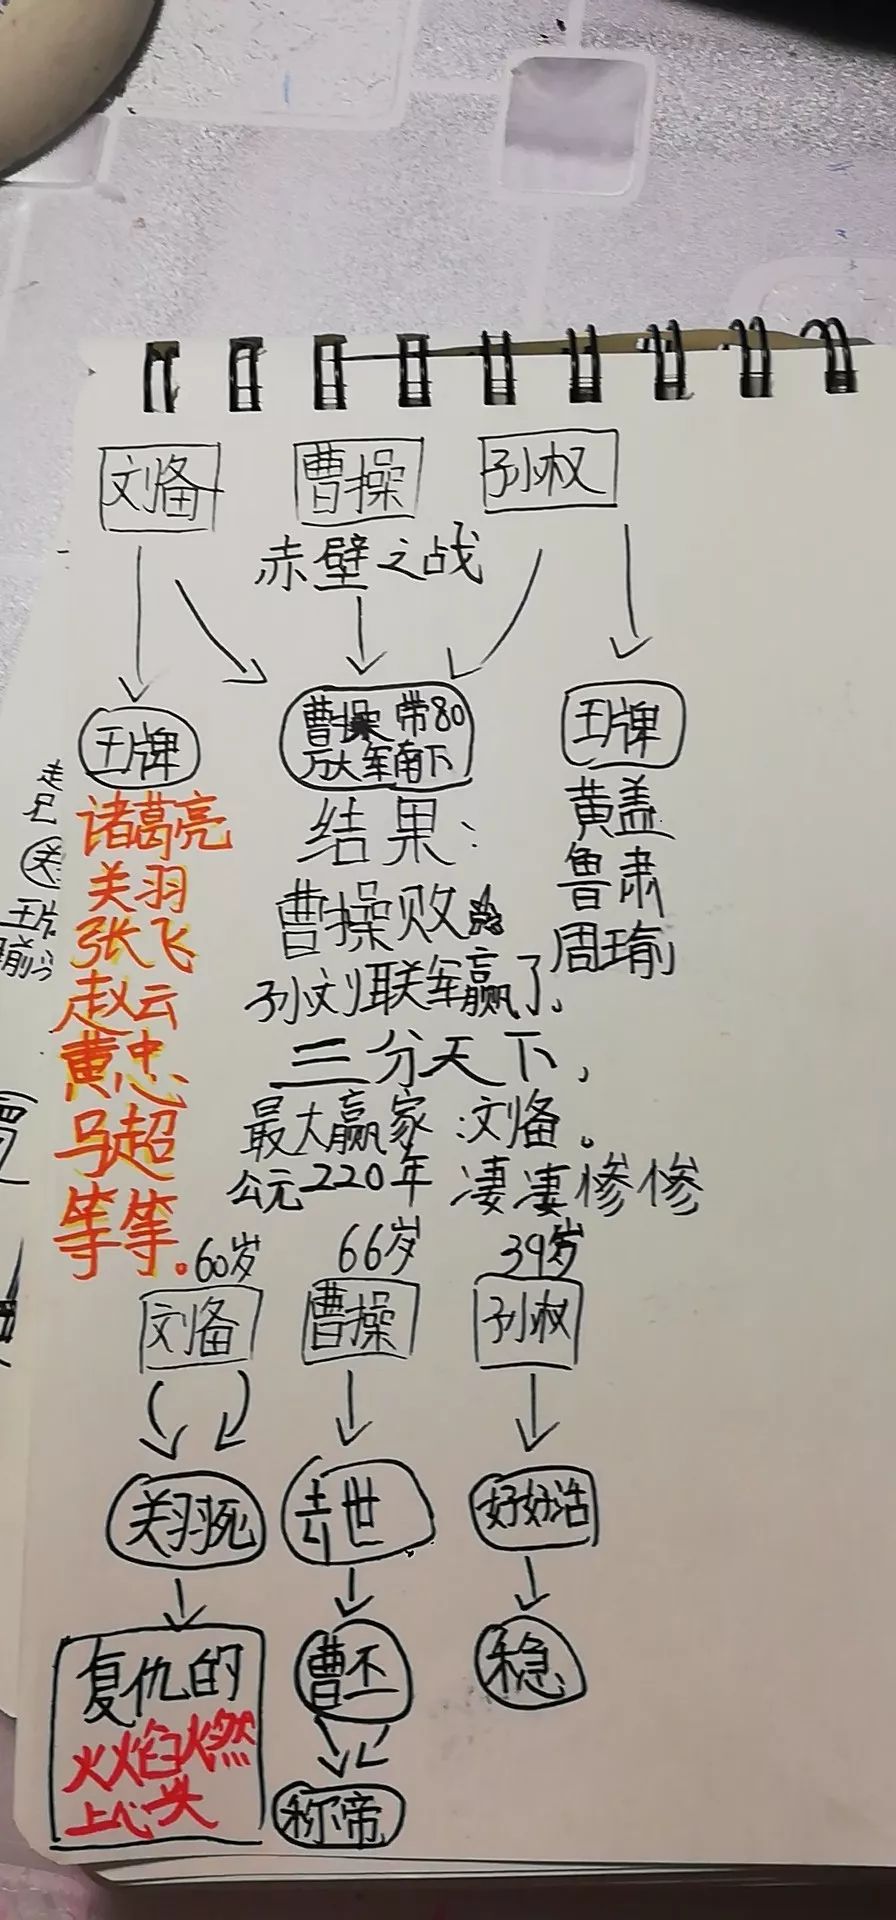 刘备 曹操 孙权
赤壁之战
王牌
诸葛亮
关羽
张飞
赵云
黄忠
马超
等等.
曹操带80
万大军南下
结果:
曹操败
孙刘联军赢了,
三分天下,
最大赢家:刘备。
公元220年 凄凄惨惨
王牌
黄盖
鲁肃
周瑜
60岁 66岁 39岁
刘备 曹操 孙权
关羽死 去世 好好活
复仇的
火焰燃
上心头
曹丕
称帝
稳